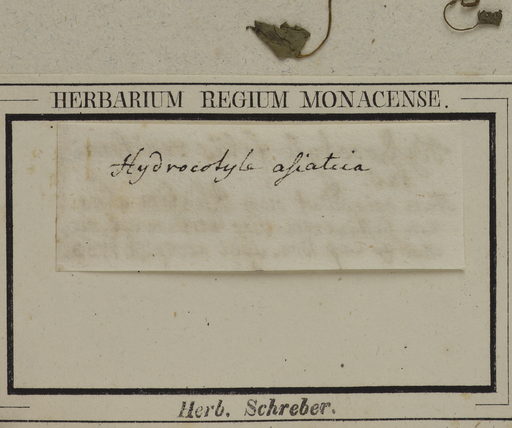 HERBARIUM REGIUM MONACENSE.
Hydrocotyle asiatica
Herb. Schreber.